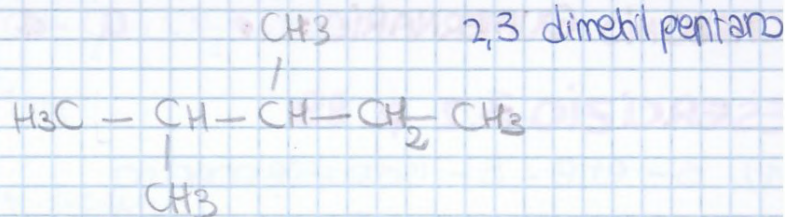 CH3 2,3 dimetil pentano
H3C - CH - CH - CH2 - CH3
CH3